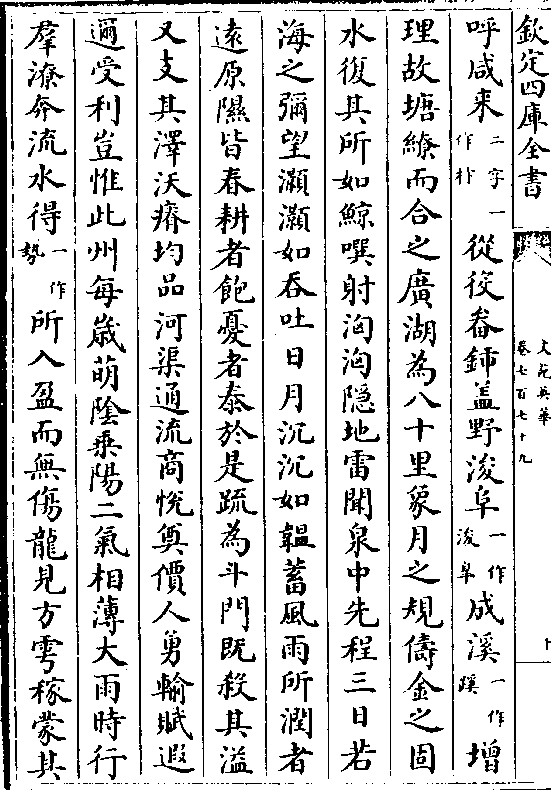 欽定四庫全書
文苑英華
卷七百七十九
呼咸来二字一作作從役畚鍤盖野浚阜一作浚阜成溪一作蹊增
理故塘繚而合之廣湖為八十里象月之規儔金之固
水復其所如鯨噀射洶洶隠地雷聞泉中先程三日若
海之彌望灝灝如吞吐日月沉沉如韞蓄風雨所潤者
逺原隰皆春耕者飽憂者泰於是疏為斗門既殺其溢
又支其澤沃瘠均品河渠通流商悦奠價人勇輸賦遐
邇受利豈惟此州每嵗萌隂乗陽二氣相薄大雨時行
羣潦奔流水得一作勢所入盈而無傷龍見方雩稼蒙其